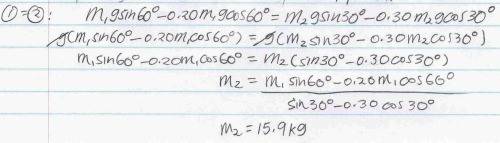 ①=②: m₁gsin60°-0.20m₁gcos60°=m₂gsin30°-0.30m₂gcos30°
g(m₁sin60°-0.20m₁cos60°)=g(m₂sin30°-0.30m₂cos30°)
m₁sin60°-0.20m₁cos60°=m₂(sin30°-0.30cos30°)
m₂=m₁sin60°-0.20m₁cos60°
sin30°-0.30cos30°
m₂=15.9kg